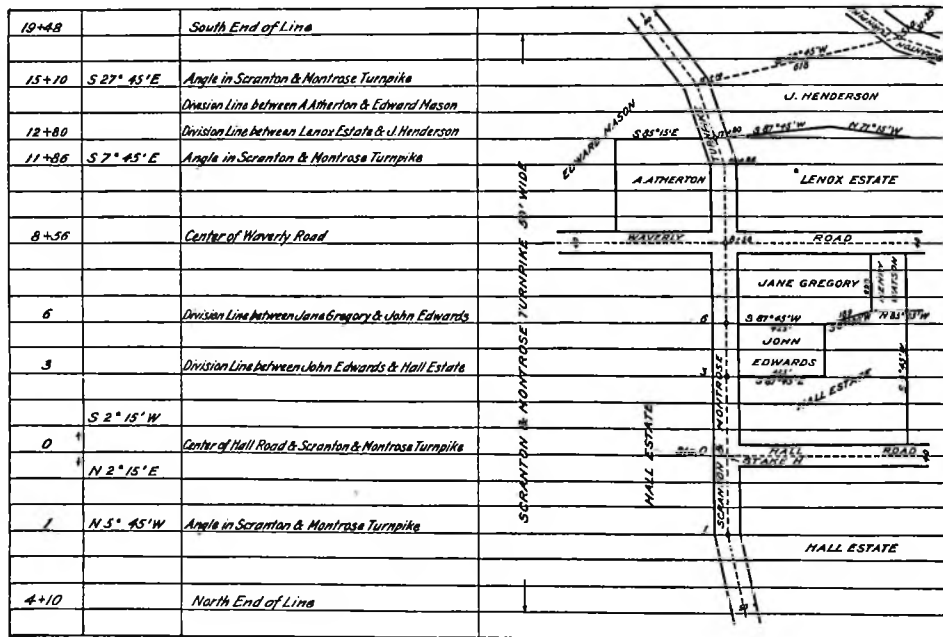 19+48 South End of Line
15+10 S 27° 45' E Angle in Scranton & Montrose Turnpike
Division Line between A Atherton & Edward Mason
12+80 Division Line between Lenox Estate & J. Henderson
11+86 S 7° 45' E Angle in Scranton & Montrose Turnpike
8+56 Center of Waverly Road
6 Division Line between Jane Gregory & John Edwards
3 Division Line between John Edwards & Hall Estate
S 2° 15' W
0 Center of Hall Road & Scranton & Montrose Turnpike
N 2° 15' E
1 N 5° 45' W Angle in Scranton & Montrose Turnpike
4+10 North End of Line
SCRANTON & MONTROSE TURNPIKE 50' WIDE
618
J. HENDERSON
TURNPIKE
EDWARD MASON
S 85° 15' E
S 87° 45' W
N 71° 15' W
A ATHERTON
LENOX ESTATE
WAVERLY
ROAD
JANE GREGORY
HENRY
WATSON
6
S 87° 45' W
JOHN
EDWARDS
3
HALL ESTATE
MONTROSE
HALL ESTATE
HALL
ROAD
STAKE H
SCRANTON
1
HALL ESTATE